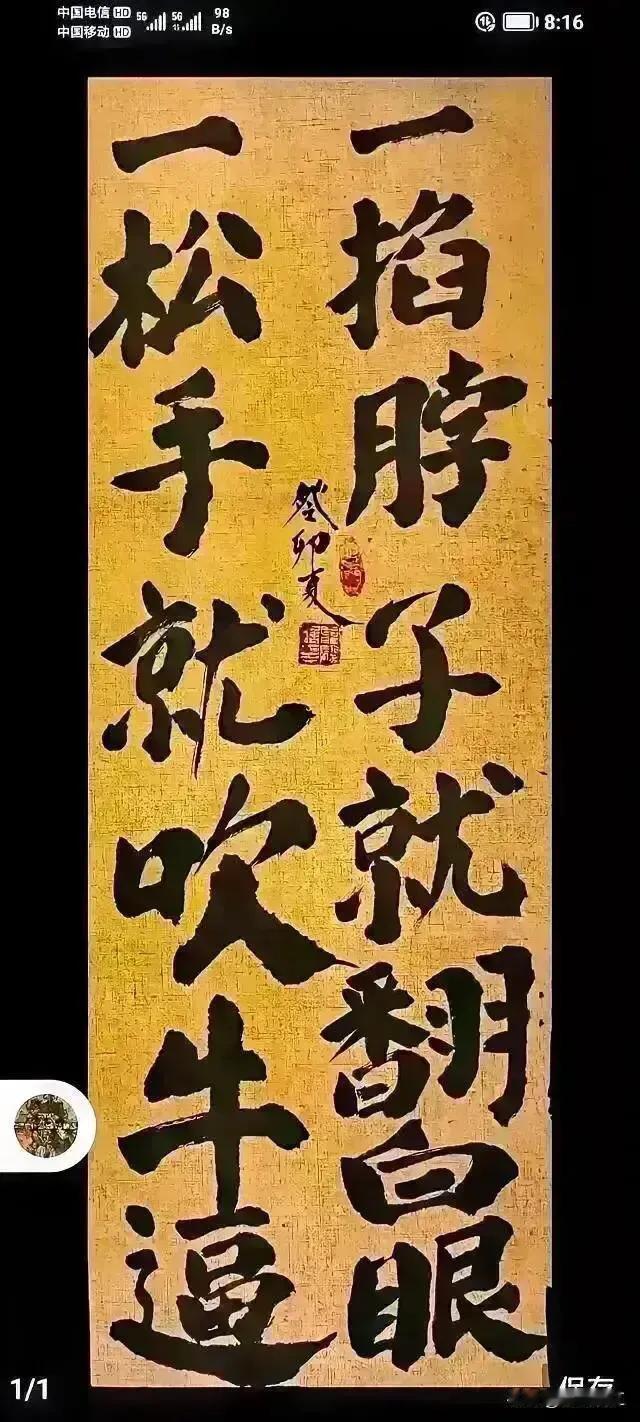 中国电信 HD 5G 5G 98 B/s
中国移动 HD
8:16
一掐脖子就翻白眼
一松手就吹牛逼
癸卯夏
1/1
保存